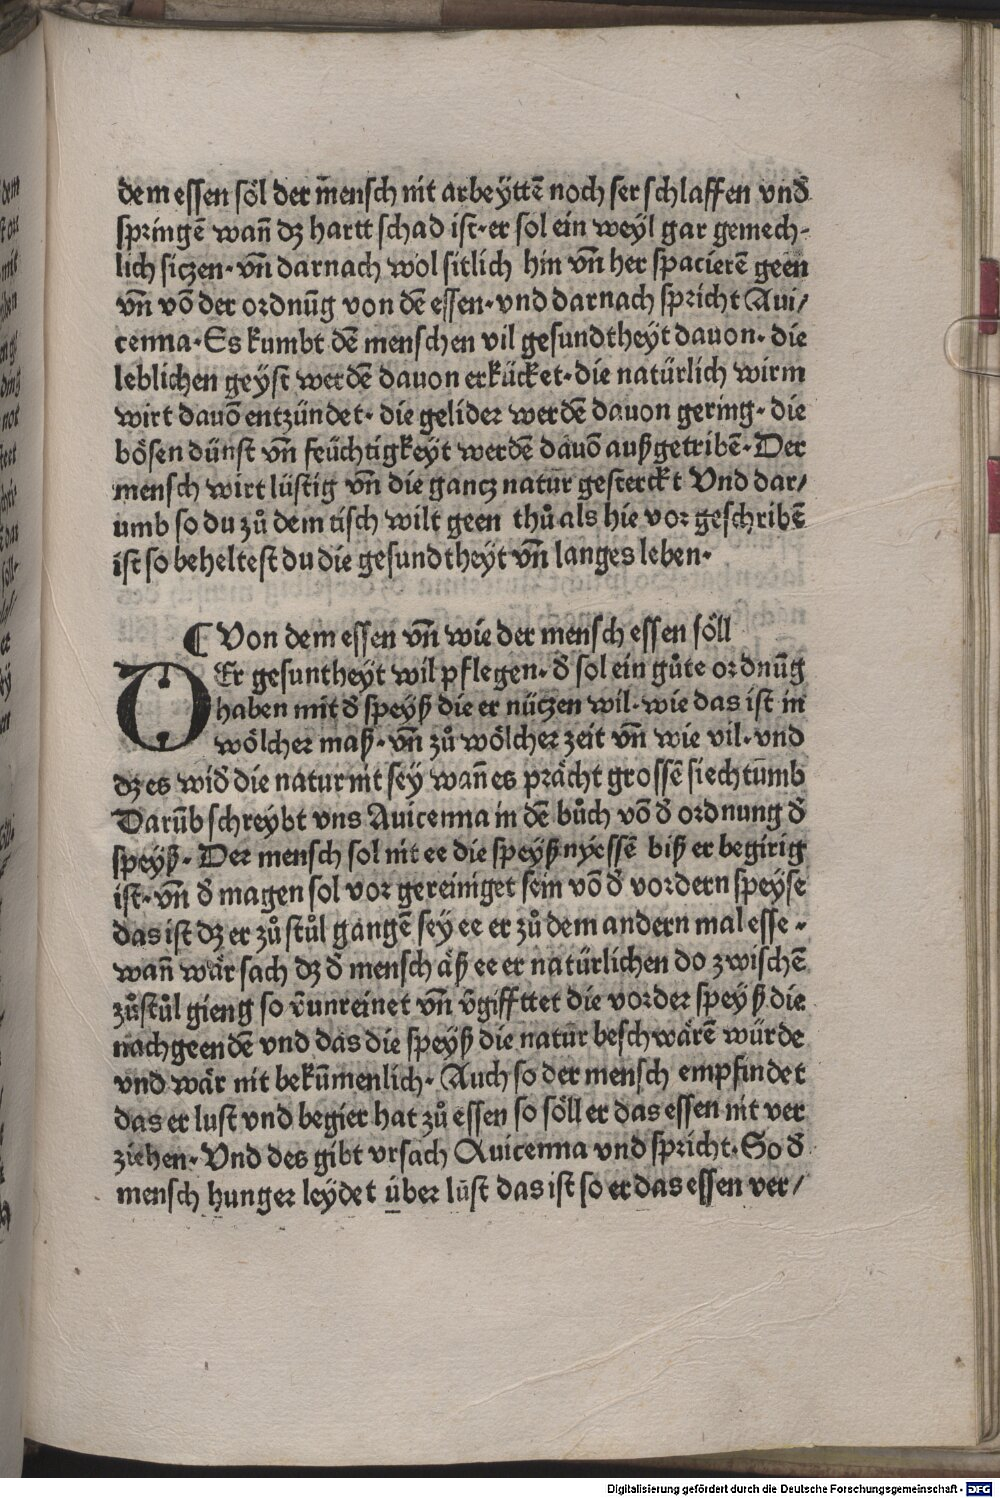 dem essen söl der m̄ensch nit arbeÿttē noch ser schlaffen vnd̄
springē wañ dz hartt schad ist· er sol ein weyl gar gemech-
lich siczen· vñ darnach wol sitlich hin vñ her spacierē geen
vñ vō der ordnūg von dē essen· vnd darnach spricht Aui/
cenna· Es kumbt dē menschen vil gesundtheyt dauon· die
leblichen geyst werdē dauon erkücket· die natürlich wirm
wirt dauō entzündet· die gelider werdē dauon gering· die
bösen dünst vñ feüchtigkeyt werdē dauō außgetribē· Der
mensch wirt lüstig vñ die gancz natur̄ gesterckt Vnd dar/
umb so du zů dem tisch wilt geen thů als hie vor geschribē
ist so beheltest du die gesundtheyt vñ langes leben·
¶ Von dem essen vñ wie der mensch essen söll
WEr gesuntheyt wil pflegen· d̄ sol ein gůte ordnūg
haben mit d̄ speÿß die er nüczen wil· wie das ist in
wölcher maß· vñ zů wölcher zeit vñ wie vil· vnd
dz es wid̄ die natur nit sey wañ es prächt grossē siechtūmb
Darūb schreybt vns Auicenna in dē bůch vō d̄ ordnung d̄
speyß· Der mensch sol nit ee die speyß nyessē biß er begirig
ist· vñ d̄ magen sol vor gereiniget sein vō d̄ vordern speyse
das ist dz er zů stůl gangē sey ee er zů dem andern mal esse·
wañ wär sach dz d̄ mensch äß ee er natürlichen do zwischē
zůstůl gieng so v̄unreinet vñ v̄giffttet die vorder speyß die
nachgeendē vnd das die speyß die natur̄ beschwärē würde
vnd wär nit bekūmenlich· Auch so der mensch empfindet
das er lust vnd begier hat zů essen so söll er das essen nit ver
ziehen· Vnd des gibt vrsach Auicenna vnd spricht· So d̄
mensch hunger leÿdet über lūst das ist so er das essen ver/
Digitalisierung gefördert durch die Deutsche Forschungsgemeinschaft - DFG